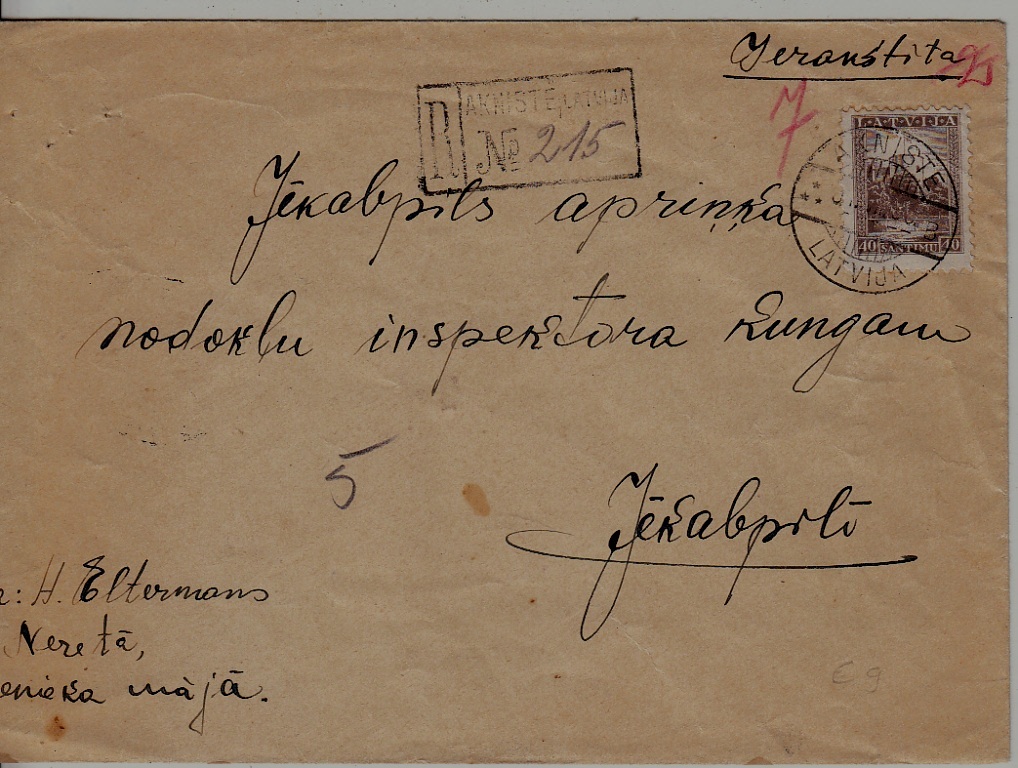 Ierakstīta
R AKNISTE, LATVIJA
№ 215
7
LATVIJA
40 SANTIMU 40
AKNISTE
LATVIJA
Jēkabpils apriņķa
nodokļu inspektora kungam
5
Jēkabpilī
H. Eltermans
Neretā,
mājā.
E 9